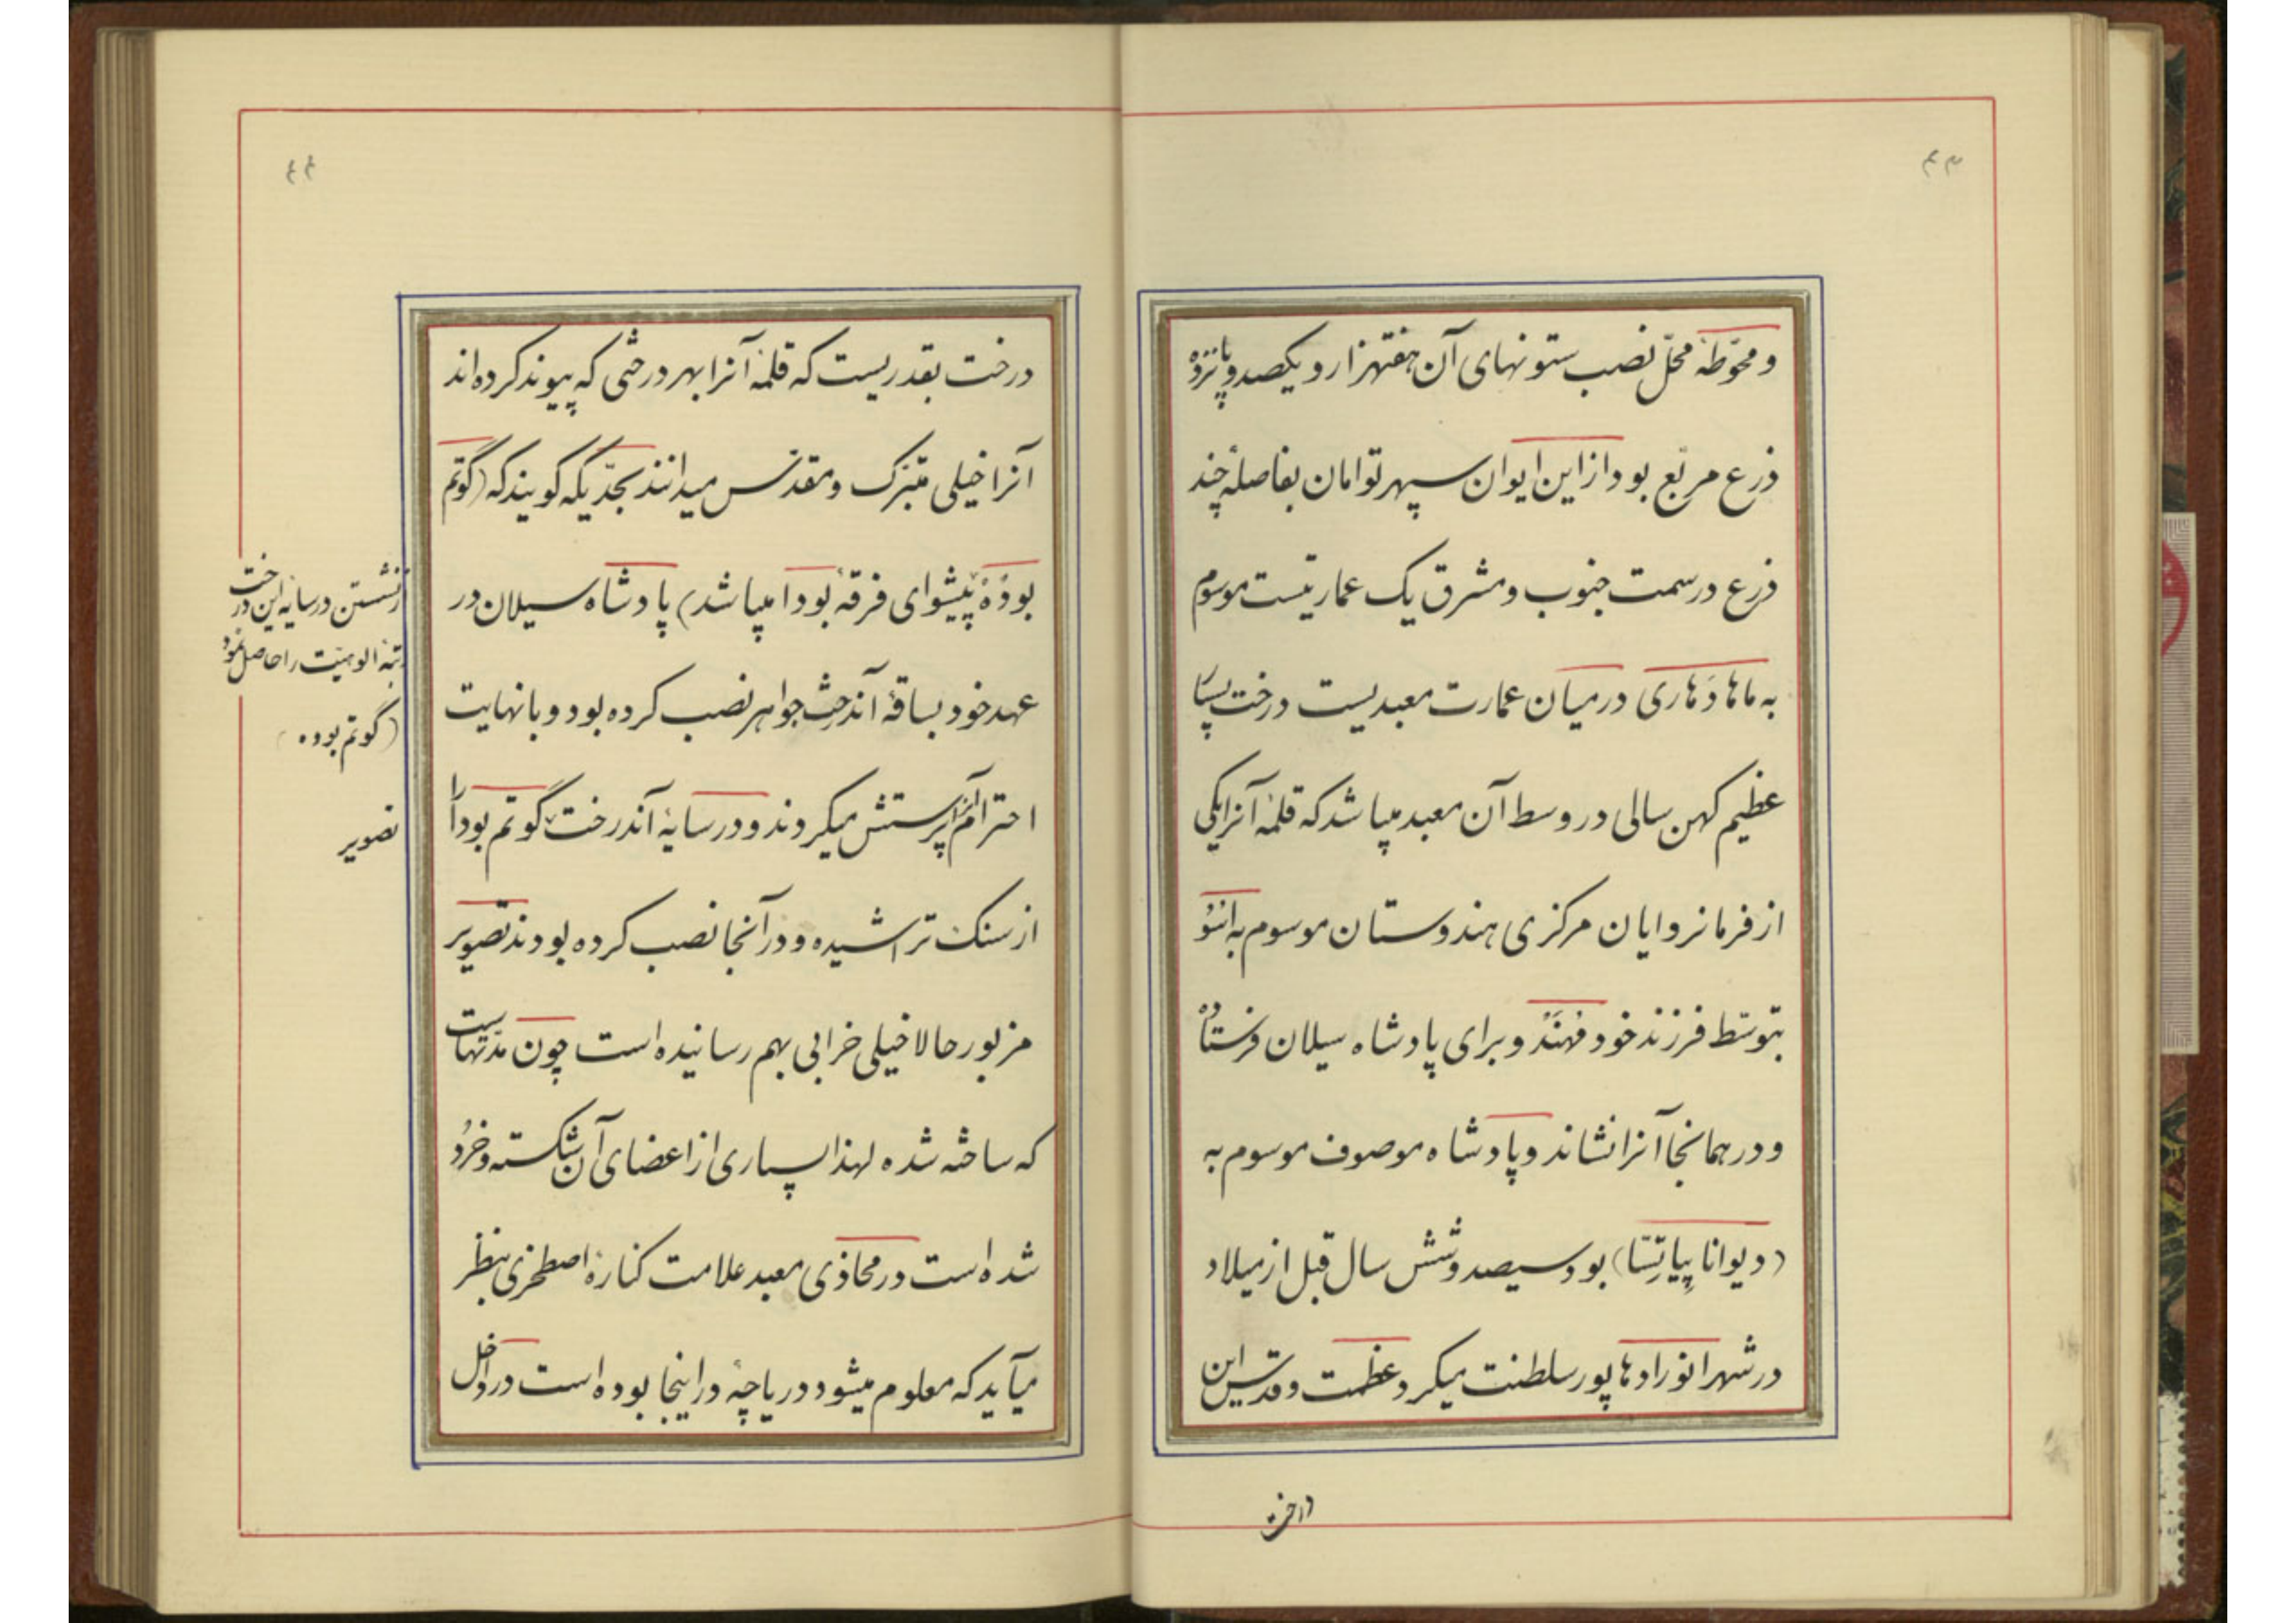 ۴۳
و محوّطهٔ محلّ نصب ستونهای آن هفتهزار و یکصد و پانزده
ذرع مربّع بود از این ایوان سپهر توامان بفاصلهٔ چند
ذرع در سمت جنوب و مشرق یک عمارتیست موسوم
به ماهادَهاری در میان عمارت معبدیست درخت پیپا
عظیم کهن سالی در وسط آن معبد میباشد که قلمهٔ آنرا یکی
از فرمانروایان مرکزی هندوستان موسوم به اننو
بتوسّط فرزند خود مهنَدو برای پادشاه سیلان فرستاده
و در همانجا آنرا نشاند و پادشاه موصوف موسوم به
(دیوانا پِیاتِسّا) بود سیصد و شش سال قبل از میلاد
در شهر انورادهاپور سلطنت میکرد عظمت و قدس این
درخت
۴۴
درخت بقدریست که قلمهٔ آنرا بهر درختی که پیوند کرده اند
آنرا خیلی متبرّک و مقدّس میدانند بحدّیکه گویند که (گوتم
بودُهْ پیشوای فرقهٔ بودا میباشد) پادشاه سیلان در
عهد خود بساقهٔ آندرخت جواهر نصب کرده بود و با نهایت
احترام آنرا پرستش میکردند و در سایهٔ آندرخت گوتم بودا را
از سنک تراشیده و در آنجا نصب کرده بودند تصویر
مزبور حالا خیلی خرابی بهم رسانیده است چون مدّتهاست
که ساخته شده لهذا بسیاری از اعضای آن شکسته و خُرد
شده است در محاذی معبد علامت کنارهٔ اصطخری بنظر
میآید که معلوم میشود دریاچهٔ در اینجا بوده است در داخل
از نشستن در سایه این درخت
رتبهٔ الوهیّت را حاصل نمود
(گوتم بوده)
تصویر